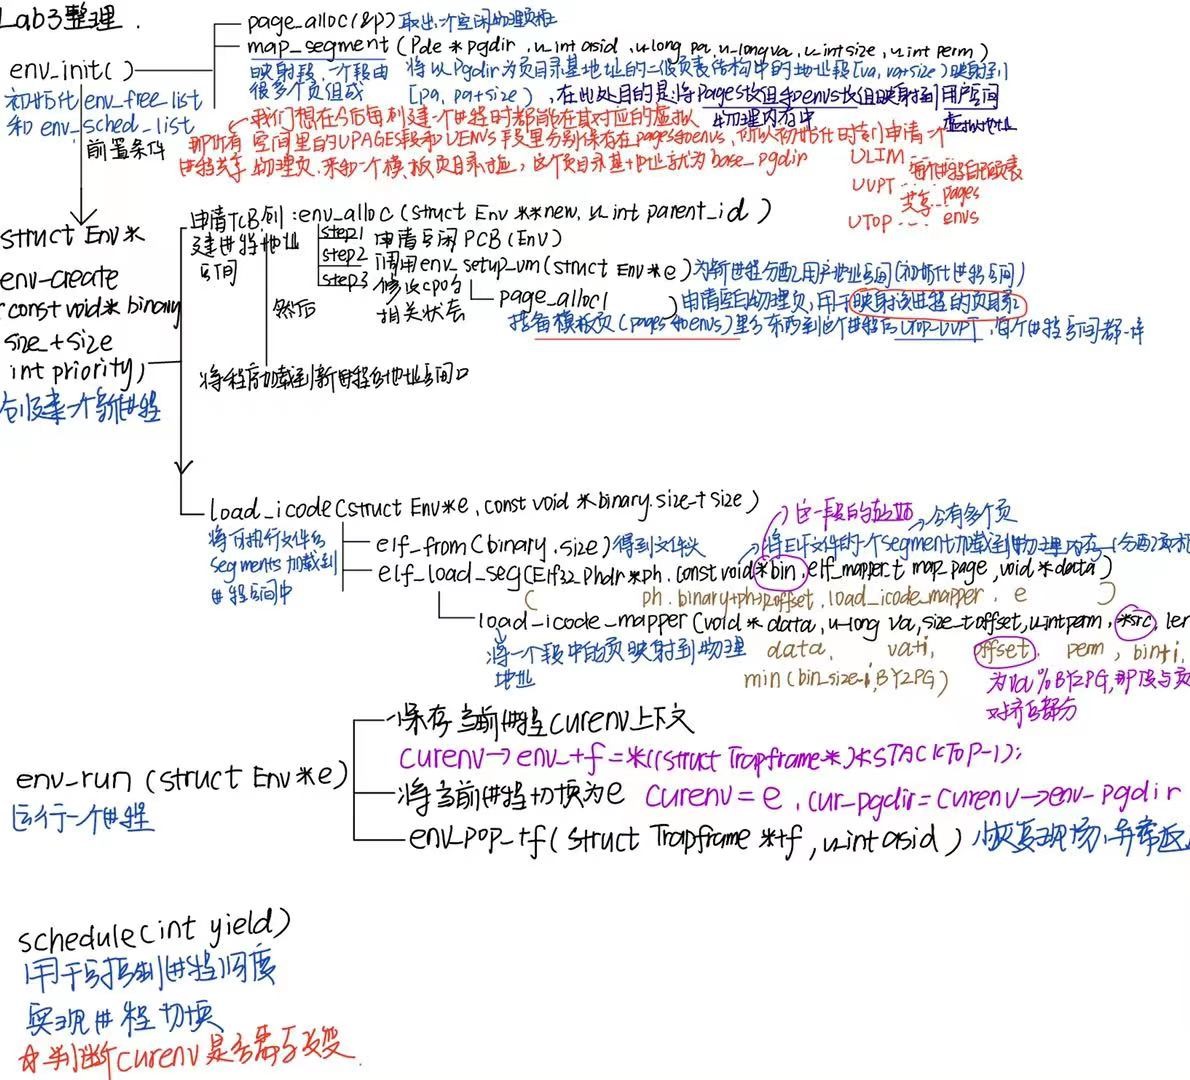 Lab3整理.
page_alloc(&p) 取出一个空闲物理页框
map_segment (Pde * pgdir, u_int asid, u_long pa, u_long va, u_int size, u_int perm)
env_init()
映射段,一个段由
很多个页组成
将以Pgdir为页目录基地址的二级页表结构中的地址段[va, va+size)映射到
[pa, pa+size), 在此处目的是:将pages数组和envs数组映射到用户空间
的物理内存中
虚拟地址
初始化env_free_list
和env_sched_list
前置条件
我们想在今后每创建一个进程的时候都能在其对应的虚拟
那所有空间里的UPAGE段和UENVS段里分别保存在pages和envs,所以初始化时专门申请一个
进程共享物理页,来和一个模板页目录对应,这个页目录基地址就为base_pgdir
ULIM 每个进程自己的页表
UVPT ... 共享 pages
UTOP ... envs
struct Env*
env-create
(const void* binary
size_t size
int priority)
创建一个新进程
申请PCB,创
建进程地址
空间
: env_alloc (struct Env **new, u_int parent_id)
step1 申请空闲PCB(Env)
step2 调用env_setup_vm(struct Env*e) 为新进程分配用户地址空间(初始化进程空间)
step3 修改cp0的
相关状态
page_alloc( ) 申请空白物理页,用于映射该进程的页目录
拷贝模板页(pages和envs)里的东西到这个进程的UTOP-UVPT,每个进程空间都一样
然后
将程序加载到新进程的地址空间中
load_icode (struct Env*e, const void *binary, size_t size)
将可执行文件的
segments加载到
进程空间中
elf_from (binary, size) 得到文件头
这一段的起始
会有多个页
将ELF文件的一个segment加载到物理内存
elf_load_seg(Elf32_Phdr *ph, const void *bin, elf_mapper_t map_page, void *data)
( ph, binary+ph->p_offset, load_icode_mapper, e )
load_icode_mapper (void * data, u_long va, size_t offset, u_int perm, *src, len
将一个段中的页映射到物理
地址
data, va+i, offset, perm, bin+i,
min (bin_size-i, BY2PG)
为va%BY2PG,即没与页
对齐的部分
env_run (struct Env*e)
运行一个进程
保存当前进程curenv上下文
curenv->env_tf = *((struct Trapframe*)KSTACKTOP-1);
将当前进程切换为e curenv = e, cur_pgdir = curenv->env_pgdir
env_pop_tf( struct Trapframe *tf, u_int asid ) 恢复现场,异常返
schedule(int yield)
用于控制进程调度
实现进程切换
☆判断curenv是否需要改变